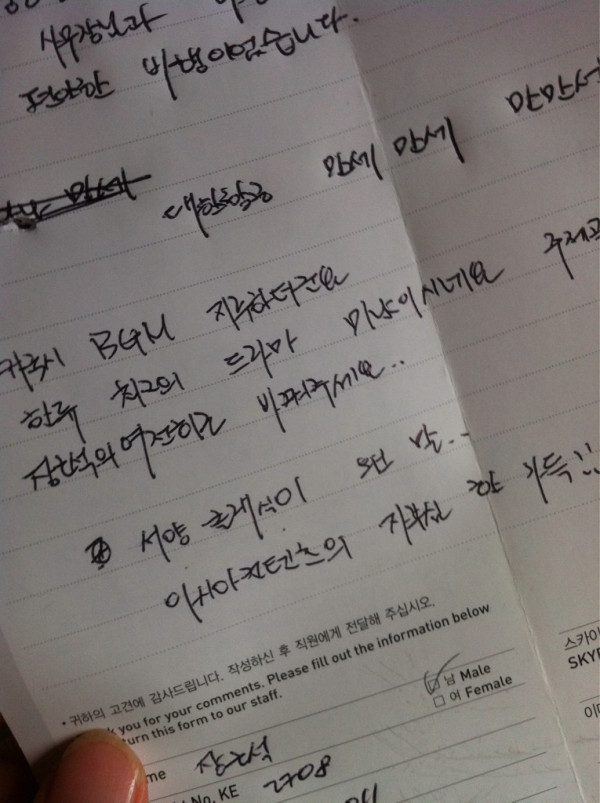 사무장님과
편안한 비행이었습니다.
대한항공 만세 만세 만만세
귀국시 BGM 지루하더군요
한류 최고의 드라마 미남이시네요 주제곡
장근석의 여전히로 바꿔주세요..
서양 클래식이 왠 말..
아시아 컨텐츠의 자부심 한 가득!!
• 귀하의 고견에 감사드립니다. 작성하신 후 직원에게 전달해 주십시오.
you for your comments. Please fill out the information below
turn this form to our staff.
남 Male
여 Female
장근석
No. KE 2708
스카이
SKY